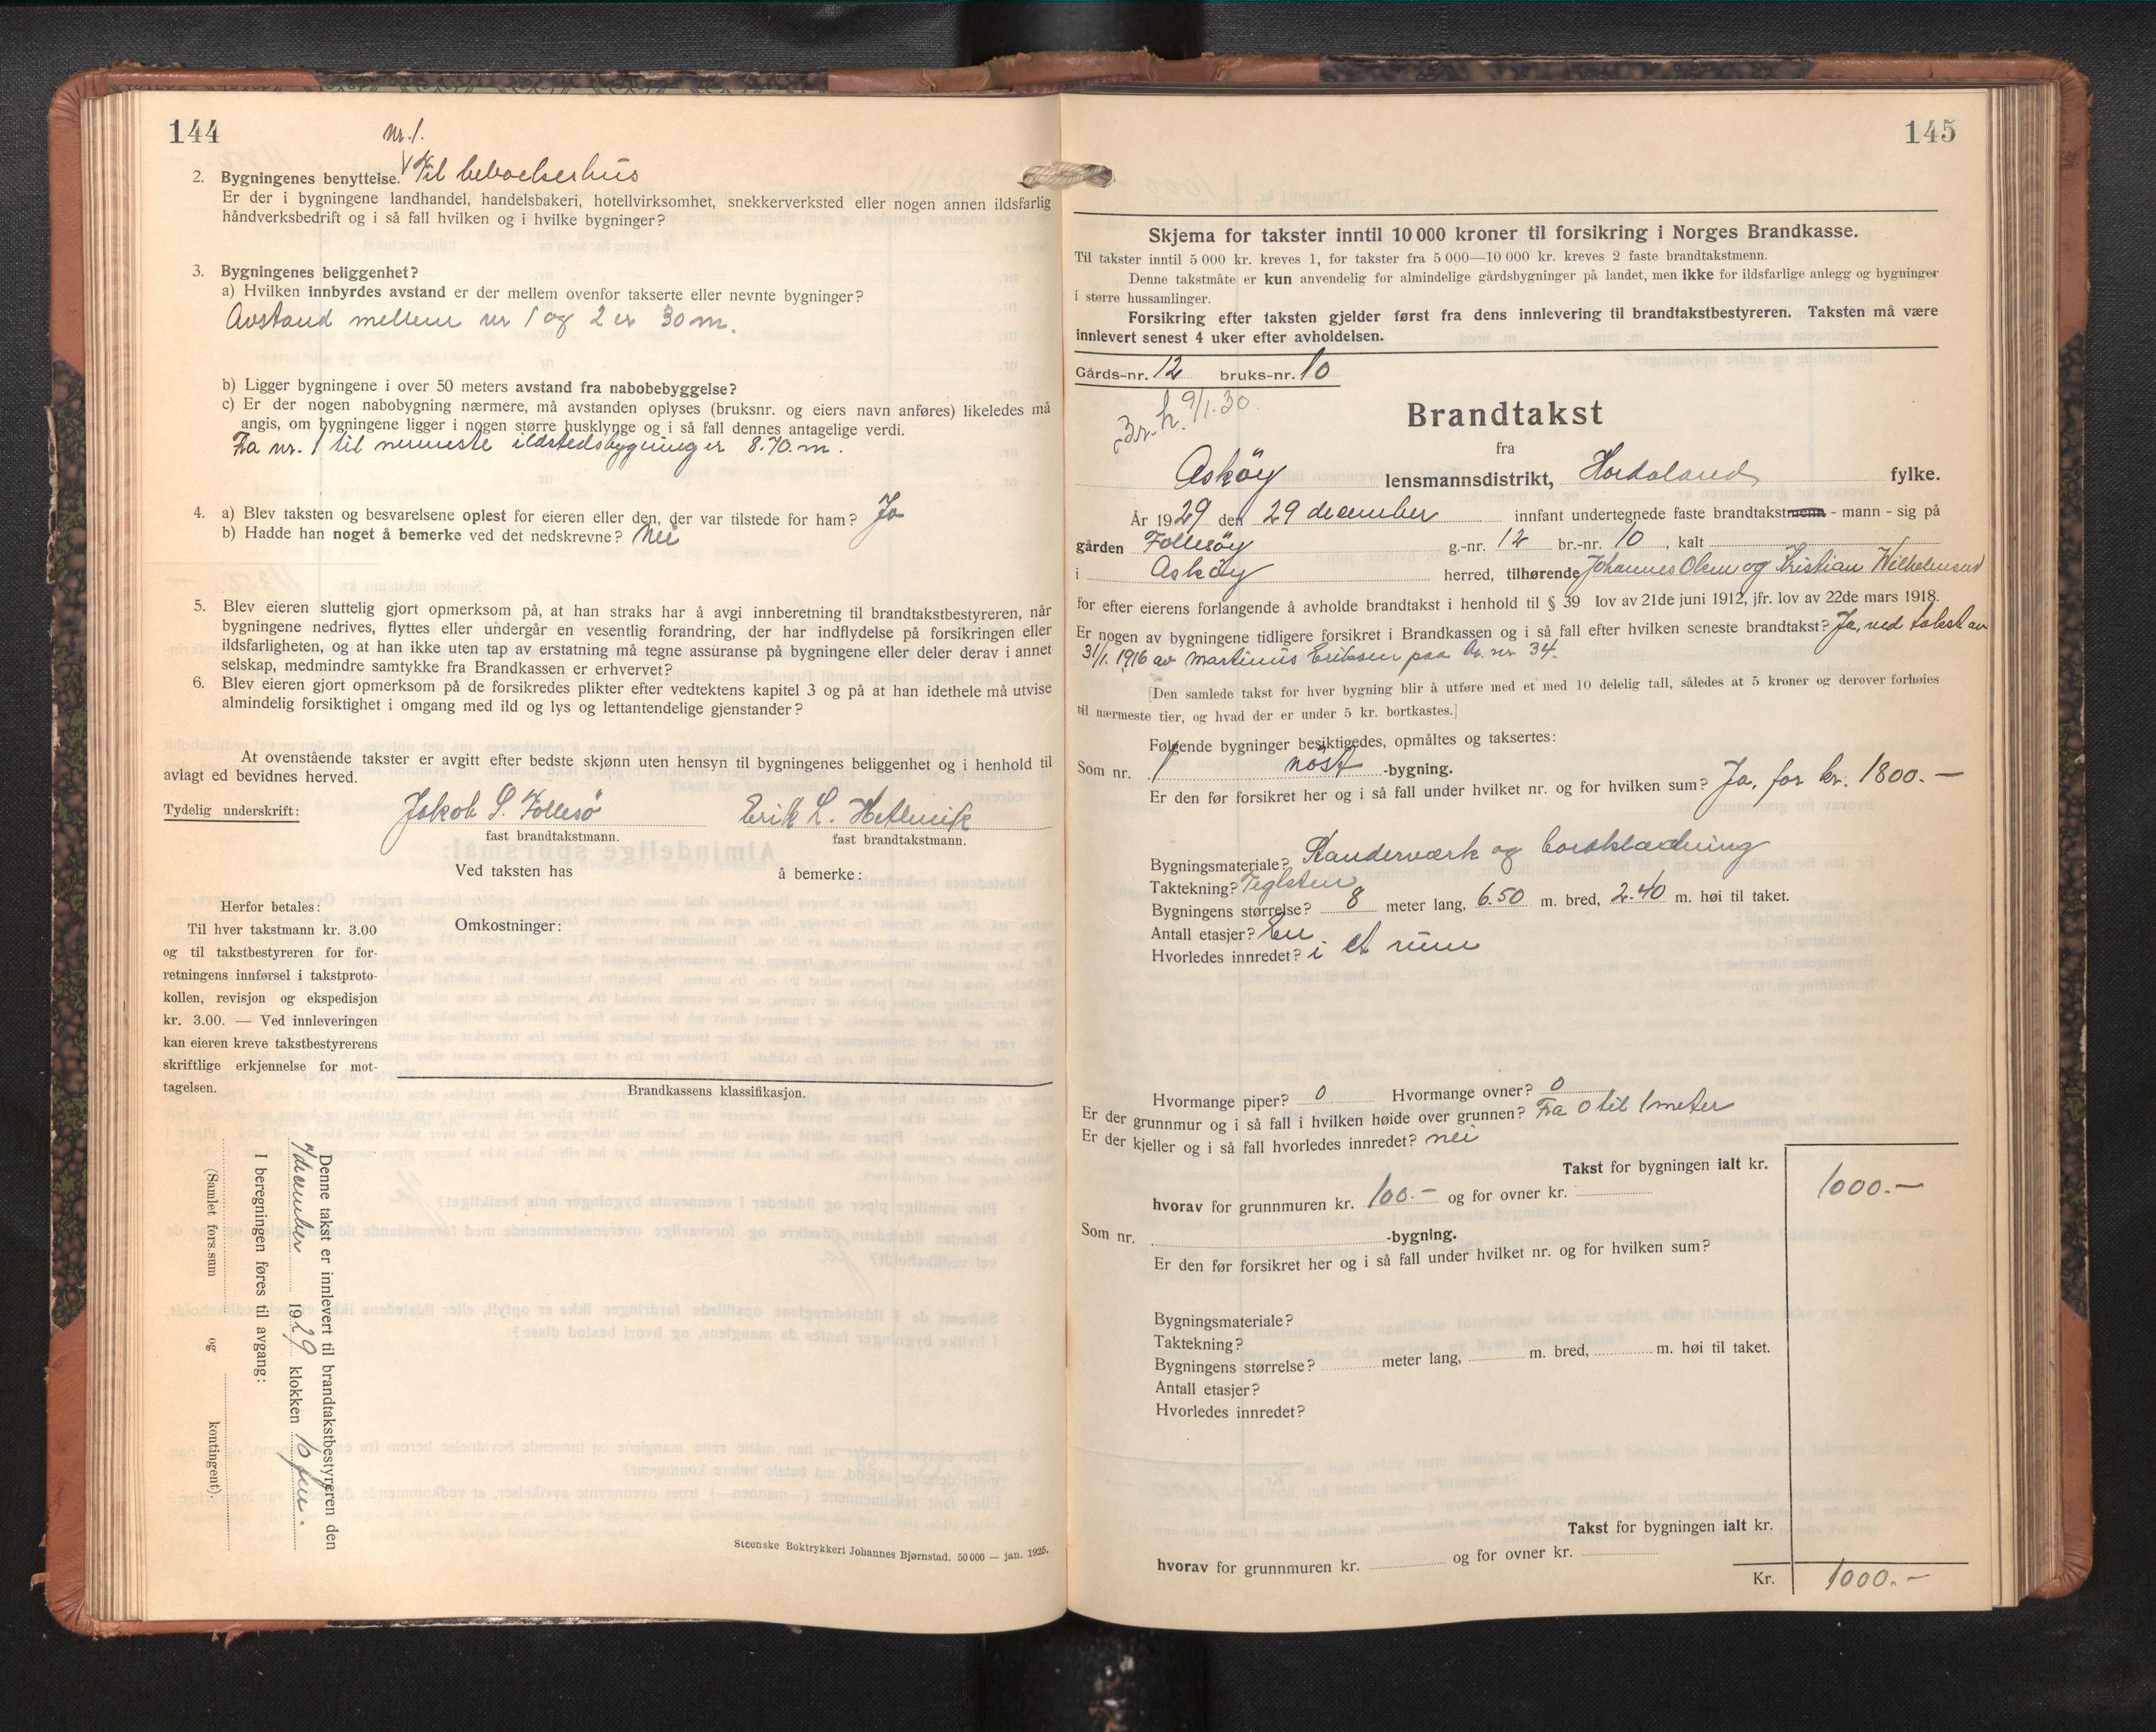 144
nr. 1.
2. Bygningenes benyttelse. Til beboelseshus
Er der i bygningene landhandel, handelsbakeri, hotellvirksomhet, snekkerverksted eller nogen annen ildsfarlig
håndverksbedrift og i så fall hvilken og i hvilke bygninger?
3. Bygningenes beliggenhet?
a) Hvilken innbyrdes avstand er der mellem ovenfor takserte eller nevnte bygninger?
Avstand mellem nr 1 og 2 er 30 m.
b) Ligger bygningene i over 50 meters avstand fra nabobebyggelse?
c) Er der nogen nabobygning nærmere, må avstanden oplyses (bruksnr. og eiers navn anføres) likeledes må
angis, om bygningene ligger i nogen større husklynge og i så fall dennes antagelige verdi.
Fra nr. 1 til nermeste ildstedsbygning er 8.70. m.
4. a) Blev taksten og besvarelsene oplest for eieren eller den, der var tilstede for ham? Ja
b) Hadde han noget å bemerke ved det nedskrevne? Nei
5. Blev eieren sluttelig gjort opmerksom på, at han straks har å avgi innberetning til brandtakstbestyreren, når
bygningene nedrives, flyttes eller undergår en vesentlig forandring, der har indflydelse på forsikringen eller
ildsfarligheten, og at han ikke uten tap av erstatning må tegne assuranse på bygningene eller deler derav i annet
selskap, medmindre samtykke fra Brandkassen er erhvervet?
6. Blev eieren gjort opmerksom på de forsikredes plikter efter vedtektens kapitel 3 og på at han idethele må utvise
almindelig forsiktighet i omgang med ild og lys og lettantendelige gjenstander?
At ovenstående takster er avgitt efter bedste skjønn uten hensyn til bygningenes beliggenhet og i henhold til
avlagt ed bevidnes herved.
Tydelig underskrift: Jakob S. Follesö Erik L. Hetlevik
fast brandtakstmann. fast brandtakstmann.
Ved taksten has å bemerke:
Herfor betales:
Til hver takstmann kr. 3.00
og til takstbestyreren for for-
retningens innførsel i takstproto-
kollen, revisjon og ekspedisjon
kr. 3.00. — Ved innleveringen
kan eieren kreve takstbestyrerens
skriftlige erkjennelse for mot-
tagelsen.
Omkostninger:
Brandkassens klassifikasjon.
Denne takst er innlevert til brandtakstbestyreren den
december 1929 klokken 10 fm.
I beregningen føres til avgang:
(Samlet fors.sum og kontingent).
Steenske Boktrykkeri Johannes Bjørnstad. 50 000 — jan. 1925.
145
Skjema for takster inntil 10 000 kroner til forsikring i Norges Brandkasse.
Til takster inntil 5 000 kr. kreves 1, for takster fra 5 000—10 000 kr. kreves 2 faste brandtakstmenn.
Denne takstmåte er kun anvendelig for almindelige gårdsbygninger på landet, men ikke for ildsfarlige anlegg og bygninger
i større hussamlinger.
Forsikring efter taksten gjelder først fra dens innlevering til brandtakstbestyreren. Taksten må være
innlevert senest 4 uker efter avholdelsen.
Gårds-nr. 12 bruks-nr. 10
Br. h. 9/1.30.
Brandtakst
fra
Asköy lensmannsdistrikt, Hordaland fylke.
År 1929 den 29 december innfant undertegnede faste brandtakstmenn - mann - sig på
gården Follesöy g.-nr. 12 br.-nr. 10, kalt
i Asköy herred, tilhørende Johannes Olsen og Kristian Wilhelmsen
for efter eierens forlangende å avholde brandtakst i henhold til § 39 lov av 21de juni 1912, jfr. lov av 22de mars 1918.
Er nogen av bygningene tidligere forsikret i Brandkassen og i så fall efter hvilken seneste brandtakst? Ja, ved takst av
31/1. 1916 av Martinus Eriksen paa br. nr 34.
[Den samlede takst for hver bygning blir å utføre med et med 10 delelig tall, således at 5 kroner og derover forhøies
til nærmeste tier, og hvad der er under 5 kr. bortkastes.]
Følgende bygninger besiktigedes, opmåltes og taksertes:
Som nr. 1 nöst -bygning.
Er den før forsikret her og i så fall under hvilket nr. og for hvilken sum? Ja, for kr. 1800.—
Bygningsmateriale? Standerværk og bordklædning
Taktekning? Teglsten
Bygningens størrelse? 8 meter lang, 6.50 m. bred, 2.40 m. høi til taket.
Antall etasjer? En
Hvorledes innredet? i et rum
Hvormange piper? 0 Hvormange ovner? 0
Er der grunnmur og i så fall i hvilken høide over grunnen? Fra 0 til 1 meter
Er der kjeller og i så fall hvorledes innredet? nei
Takst for bygningen ialt kr. 1000.—
hvorav for grunnmuren kr. 100.— og for ovner kr.
Som nr. -bygning.
Er den før forsikret her og i så fall under hvilket nr. og for hvilken sum?
Bygningsmateriale?
Taktekning?
Bygningens størrelse? meter lang, m. bred, m. høi til taket.
Antall etasjer?
Hvorledes innredet?
Takst for bygningen ialt kr.
hvorav for grunnmuren kr. og for ovner kr.
Kr. 1000.—